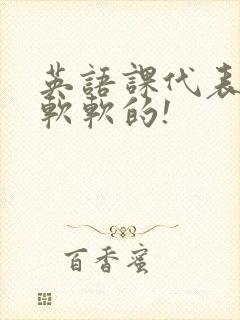 英語課代表
軟軟的!
百香蜜